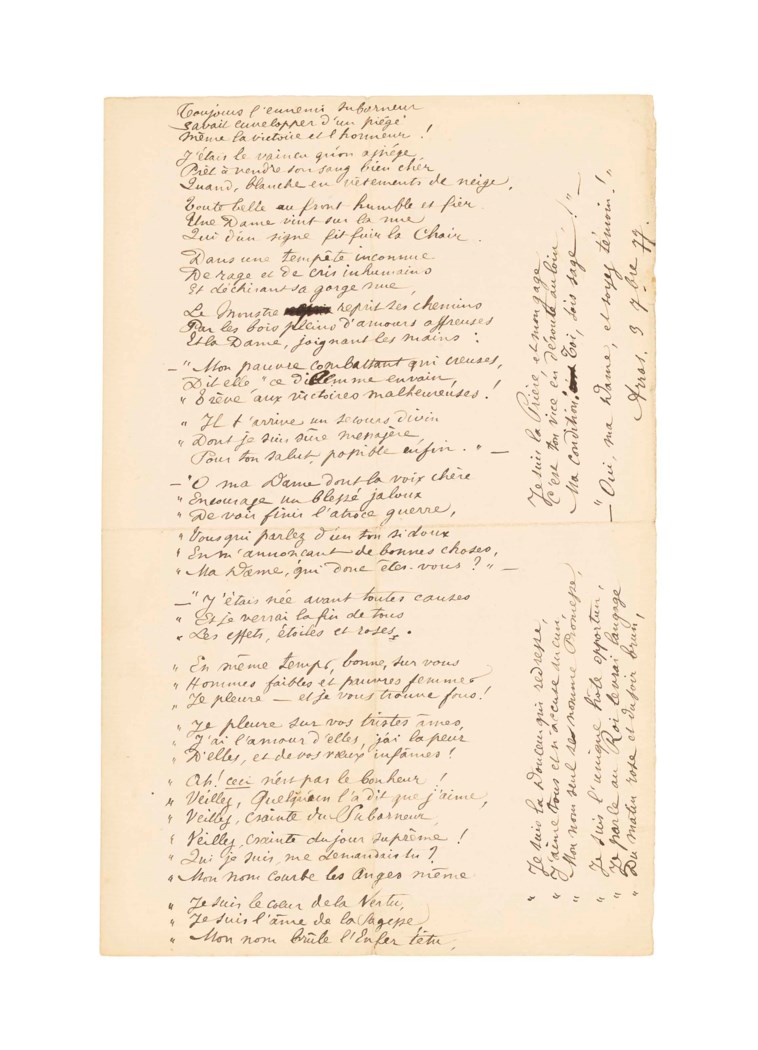 Toujours l'ennemi suborneur
savait envelopper d'un piège
même la victoire et l'honneur !
J'étais le vaincu qu'on assiège,
Prêt à vendre son sang bien cher
Quand, blanche en vêtements de neige,
Toute belle au front humble et fier
Une Dame vint sur la nue
Qui d'un signe fit fuir la Chair.
Dans une tempête inconnue
De rage et de cris inhumains
Et déchirant sa gorge nue,
Le Monstre reprit ses chemins
Par les bois pleins d'amours affreuses
Et la Dame, joignant les mains :
— " Mon pauvre combattant qui creuses,
Dit elle " ce dilemme en vain,
" Trève aux victoires malheureuses !
" Il t'arrive un secours divin
" Dont je suis sûre messagère
" Pour ton salut, possible enfin. " —
— "O ma Dame dont la voix chère
" Encourage un blessé jaloux
" De voir finir l'atroce guerre,
" Vous qui parlez d'un ton si doux
" En m'annonçant de bonnes choses,
" Ma Dame, qui donc êtes-vous ? " —
— " J'étais née avant toutes causes
" Et je verrai la fin de tous
" Les effets, étoiles et roses.
" En même temps, bonne, sur vous
" Hommes faibles et pauvres femmes
" Je pleure — et je vous trouve fous !
" Je pleure sur vos tristes âmes,
" J'ai l'amour d'elles, j'ai la peur
" D'elles, et de vos vœux infâmes !
" Ah ! ceci n'est pas le bonheur !
" Veillez, Quelqu'un l'a dit que j'aime,
" Veillez, crainte du Suborneur,
" Veillez, crainte du jour suprême !
" Qui je suis, me demandais tu ?
" Mon nom courbe les Anges même
" Je suis le cœur de la Vertu,
" Je suis l'âme de la Sagesse
" Mon nom brûle l'Enfer têtu,
" Je suis la Douceur qui redresse,
" J'aime tous et n'accuse aucun,
" Mon nom seul se nomme Promesse,
" Je suis l'unique hôte opportun,
" Je parle au Roi le vrai langage
" Du matin rose et du soir brun,
Je suis la Prière, et mon gage
C'est ton vice en déroute au loin.
Ma condition : Toi, sois sage ! " —
— " Oui, ma Dame, et soyez témoin ! "
Arras. 3 7bre 77.